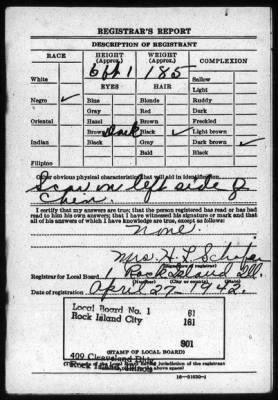 REGISTRAR'S REPORT
DESCRIPTION OF REGISTRANT
RACE HEIGHT (Approx.) WEIGHT (Approx.) COMPLEXION
6 ft 1 185
White EYES HAIR Sallow
Light
Negro ✓ Blue Blonde Ruddy
Gray Red Dark
Oriental Hazel Brown Freckled
Brown Dark Black ✓ Light brown
Indian Black Gray Dark brown ✓
Bald Black
Filipino
Other obvious physical characteristics that will aid in identification
Scar on left side of
Chin.
I certify that my answers are true; that the person registered has read or has had
read to him his own answers; that I have witnessed his signature or mark and that
all of his answers of which I have knowledge are true, except as follows:
None.
Mrs. H. L.
(Signature of registrar)
Registrar for Local Board 1 Rock Island Ill.
(Number) (City or county) (State)
Date of registration April 27 - 1942
Local Board No. 1 61
Rock Island City 161
801
(STAMP OF LOCAL BOARD)
409 Cleaveland Bldg.
Rock Island, Illinois